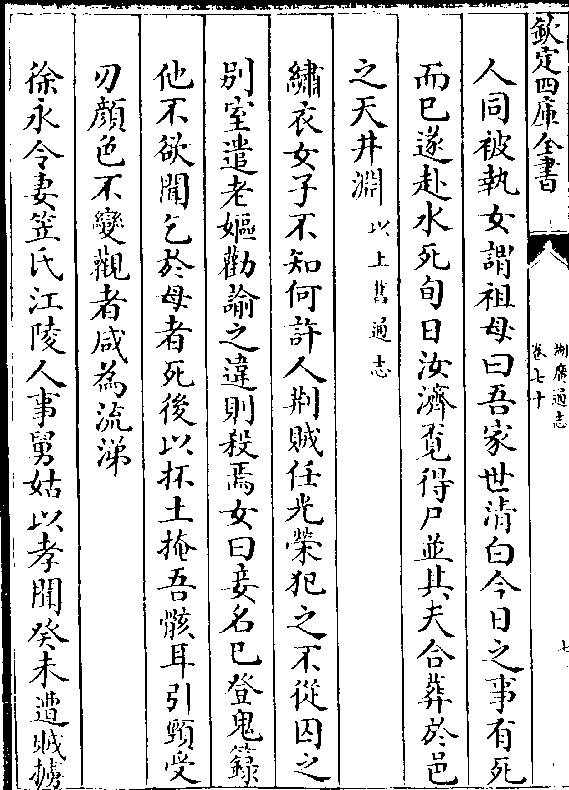 欽定四庫全書
湖廣通志
卷七十
七
人同被執女謂祖母曰吾家世清白今日之事有死
而已遂赴水死旬日汝濟覓得尸並其夫合葬於邑
之天井淵以上舊通志
繡衣女子不知何許人荆賊任光榮犯之不從囚之
别室遣老嫗勸諭之違則殺焉女曰妾名已登鬼籙
他不欲聞乞於母者死後以抔土掩吾骸耳引頸受
刃顔色不變觀者咸為流涕
徐永令妻笠氏江陵人事舅姑以孝聞癸未遭賊擄